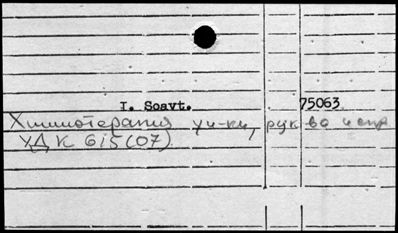 I. Soavt. 75063
Химиотерапия уч-ки, рук во и спр
УДК 615(07)